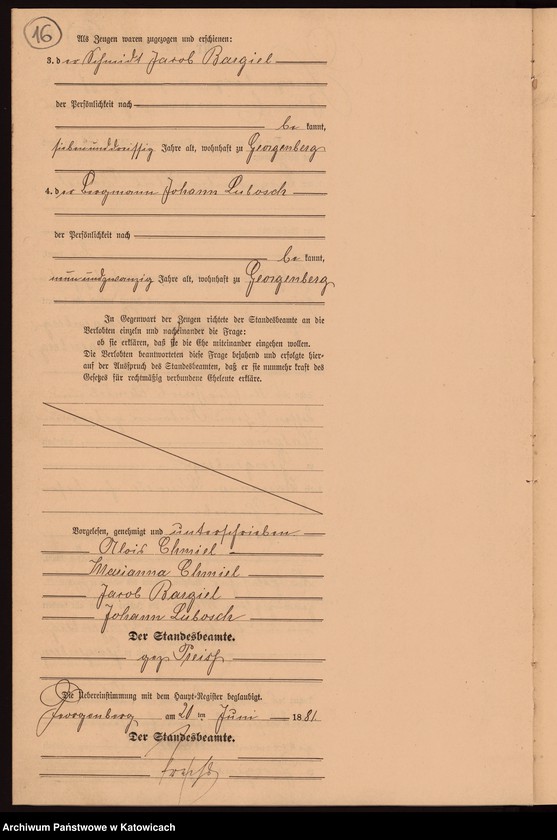 16
Als Zeugen waren zugezogen und erschienen:
3. der Schmidt Jacob Bargiel
der Persönlichkeit nach
be kannt,
siebenunddreissig Jahre alt, wohnhaft zu Georgenberg
4. der Bergmann Johann Lubosch
der Persönlichkeit nach
be kannt,
neunundzwanzig Jahre alt, wohnhaft zu Georgenberg
In Gegenwart der Zeugen richtete der Standesbeamte an die
Verlobten einzeln und nacheinander die Frage:
ob sie erklären, daß sie die Ehe miteinander eingehen wollen.
Die Verlobten beantworteten diese Frage bejahend und erfolgte hier-
auf der Ausspruch des Standesbeamten, daß er sie nunmehr kraft des
Gesetzes für rechtmäßig verbundene Eheleute erkläre.
Vorgelesen, genehmigt und unterschrieben
Alois Chmiel
Marianna Chmiel
Jacob Bargiel
Johann Lubosch
Der Standesbeamte.
gez
Die Uebereinstimmung mit dem Haupt-Register beglaubigt.
Georgenberg am 20 ten Juni 1881
Der Standesbeamte.
Archiwum Państwowe w Katowicach